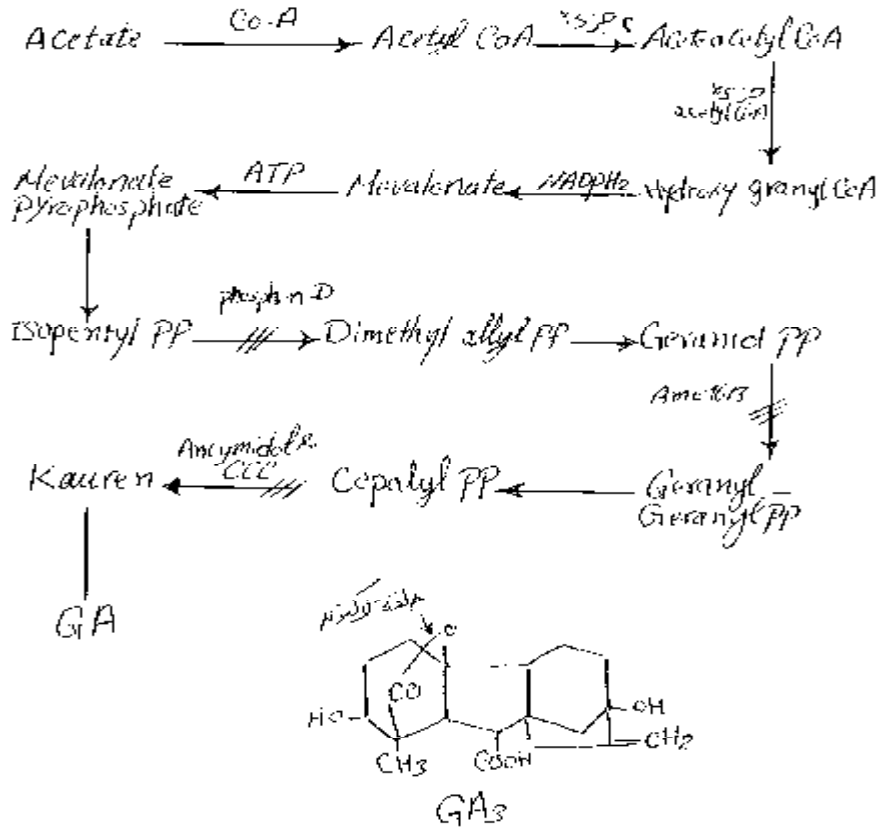 Acetate
Co-A
Acetyl CoA
Acetoacetyl CoA
Mevalonate
pyrophosphate
ATP
Mevalonate
NADPH2
Hydroxy granyl CoA
Isopentyl PP
phosphon D
Dimethyl allyl PP
Geraniol PP
Kauren
Ancymidol &
CCC
Copalyl PP
Geranyl –
Geranyl PP
GA
O
CO
HO
CH3
COOH
OH
CH2
GA3